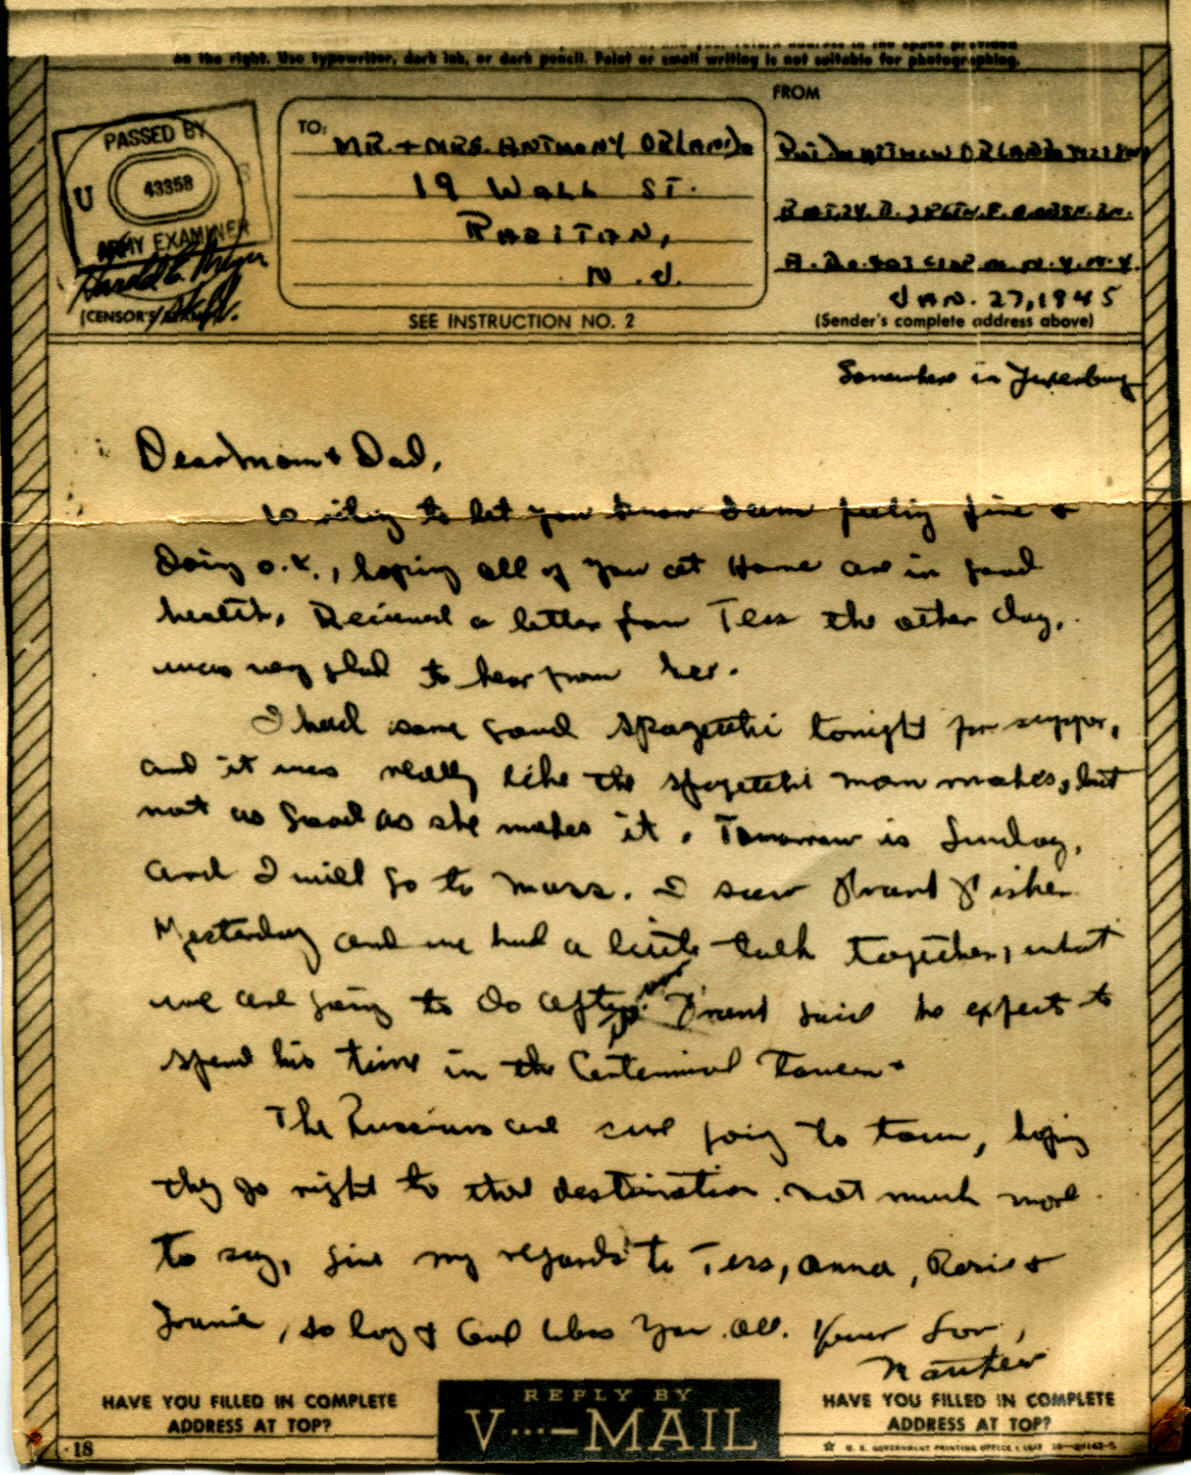 on the right. Use typewriter, dark ink, or dark pencil. Faint or small writing is not suitable for photographing.
PASSED BY
U S
43358
ARMY EXAMINER
(CENSOR'S STAMP)
TO:
MR. + MRS. ANTHONY ORLANDO
19 WALL ST.
RARITAN,
N. J.
SEE INSTRUCTION NO. 2
FROM
Pvt. MATTHEW ORLANDO
N.Y. N.Y.
JAN. 27, 1945
(Sender's complete address above)
Somewhere in Luxenburg
Dear Mom + Dad,
Writing to let you know I am feeling fine +
doing O.K., hoping all of you at Home are in good
health. Recieved a letter from Tess the other day,
was very glad to hear from her.
I had some good spagetthi tonight for supper,
and it was really like the spagetthi mom makes, but
not as good as she makes it. Tomorrow is Sunday,
and I will go to Mass. I saw Frank Fisher
Yesterday and we had a little talk together, what
we are going to do after war. Frank said he expects to
spend his time in the Centennial Tavern.
The Russians are sure going to town, hoping
they go right to their destination. Not much more
to say, give my regards to Tess, Anna, Rosie +
Frannie, so long + God bless You all. Your Son,
Matthew
HAVE YOU FILLED IN COMPLETE
ADDRESS AT TOP?
REPLY BY
V···—MAIL
HAVE YOU FILLED IN COMPLETE
ADDRESS AT TOP?
18
U. S. GOVERNMENT PRINTING OFFICE